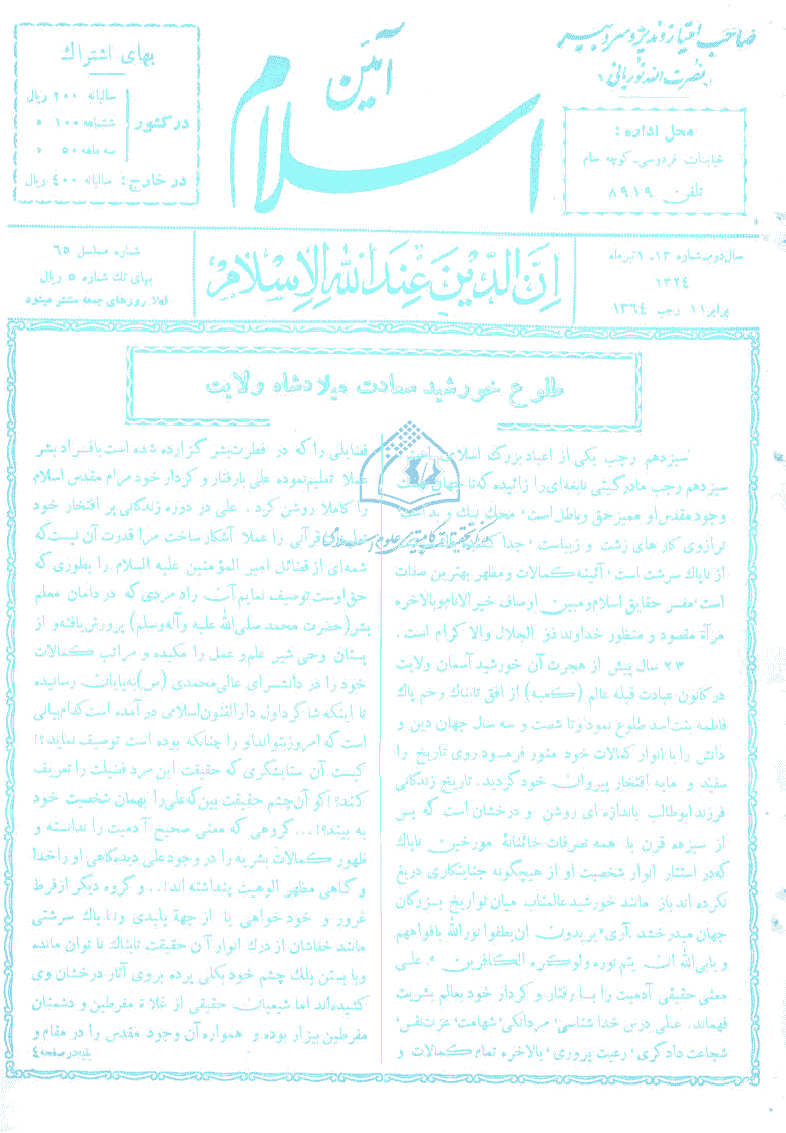 صاحب امتیاز و مدیر و سردبیر
نصرت الله نوریانی
محل اداره :
خیابان فردوسی - کوچه سام
تلفن ۸۹۱۹
آئین اسلام
بهای اشتراك
در کشور
سالیانه ۲۰۰ ریال
ششماهه ۱۰۰ »
سه ماهه ۵۰ »
در خارج : سالیانه ۴۰۰ ریال
سال دوم - شماره ۱۳ - ۱ تیر ماه
۱۳۲۴
برابر ۱۱ رجب ۱۳۶۴
اِنَّ الدّینَ عِندَ اللهِ الاِسلام
شماره مسلسل ۶۵
بهای تك شماره ۵ ریال
فعلا روزهای جمعه منتشر میشود
طلوع خورشید سعادت میلاد شاه ولایت
سیزدهم رجب یکی از اعیاد بزرگ اسلامی است
سیزدهم رجب مادر گیتی نابغه‌ای را زائیده که تا جهان
وجود مقدس او ممیز حق و باطل است ، محك نيك و بد است
ترازوی کار های زشت و زیباست ، جدا کننده
از ناپاك سرشت است ، آئینه کمالات و مظهر بهترین صفات
است ، مفسر حقایق اسلام و مبین اوصاف خیر الانام و بالاخره
مرآة مقصود و منظور خداوند ذی الجلال والا کرام است .
۲۳ سال پیش از هجرت آن خورشید آسمان ولایت
در کانون عبادت قبله عالم (کعبه) از افق تابناك رحم پاك
فاطمه بنت اسد طلوع نمود و تا شصت و سه سال جهان دین و
دانش را با انوار کمالات خود منور فرمود روی تاریخ را
سفید و مایه افتخار پیروان خود گردید . تاریخ زندگانی
فرزند ابوطالب باندازه ای روشن و درخشان است که پس
از سیزده قرن با همه تصرفات خائنانهٔ مورخین ناپاك
که در استتار انوار شخصیت او از هیچگونه جنایتکاری دریغ
نکرده اند باز مانند خورشید عالمتاب میان تواریخ بزرگان
جهان میدرخشد . آری ، یریدون ان یطفوا نور الله بافواههم
و یابی الله ان یتم نوره ولو کره الکافرین . علی
معنی حقیقی آدمیت را با رفتار و کردار خود بعالم بشریت
فهماند . علی درس خدا شناسی ، مردانگی ، شهامت ، عزت نفس ،
شجاعت دادگری ، رعیت پروری ، بالاخره تمام کمالات و
فضایلی را که در فطرت بشر گزارده شده است بافراد بشر
عملا تعلیم نموده علی با رفتار و کردار خود مرام مقدس اسلام
را کاملا روشن کرد . علی در دوره زندگانی پر افتخار خود
قرآنی را عملا آشکار ساخت مرا قدرت آن نیست که
شمه ای از فضائل امیر المؤمنین علیه السلام را بطوری که
حق اوست توصیف نمایم آن راد مردی که در دامان معلم
بشر (حضرت محمد صلی الله علیه و آله وسلم) پرورش یافته و از
پستان وحی شیر علم و عمل را مکیده و مراتب کمالات
خود را در دانشسرای عالی محمدی (ص) بپایان رسانیده
تا اینکه شاگرد اول دارالفنون اسلامی در آمده است کدام بیانی
است که امروز بتواند او را چنانکه بوده است توصیف نماید ؟!
کیست آن ستایشگری که حقیقت این مرد فضیلت را تعریف
کند ؟! کو آن چشم حقیقت بین که علی را بهمان شخصیت خود
به بیند ؟! ... گروهی که معنی صحیح آدمیت را ندانسته و
ظهور کمالات بشریه را در وجود علی دیده گاهی او را خدا
و گاهی مظهر الوهیت پنداشته اند ! .. و گروه دیگر از فرط
غرور و خود خواهی یا از جهة پلیدی و نا پاك سرشتی
مانند خفاشان از درك انوار آن حقیقت تابناك نا توان مانده
و با بستن پلك چشم خود بکلی پرده بروی آثار درخشان وی
کشیده‌اند اما شیعیان حقیقی از غلاة مفرطین و دشمنان
مفرطین بیزار بوده و همواره آن وجود مقدس را در مقام و
بقیه در صفحه ۴
مرکز تحقیقات کامپیوتری علوم اسلامی